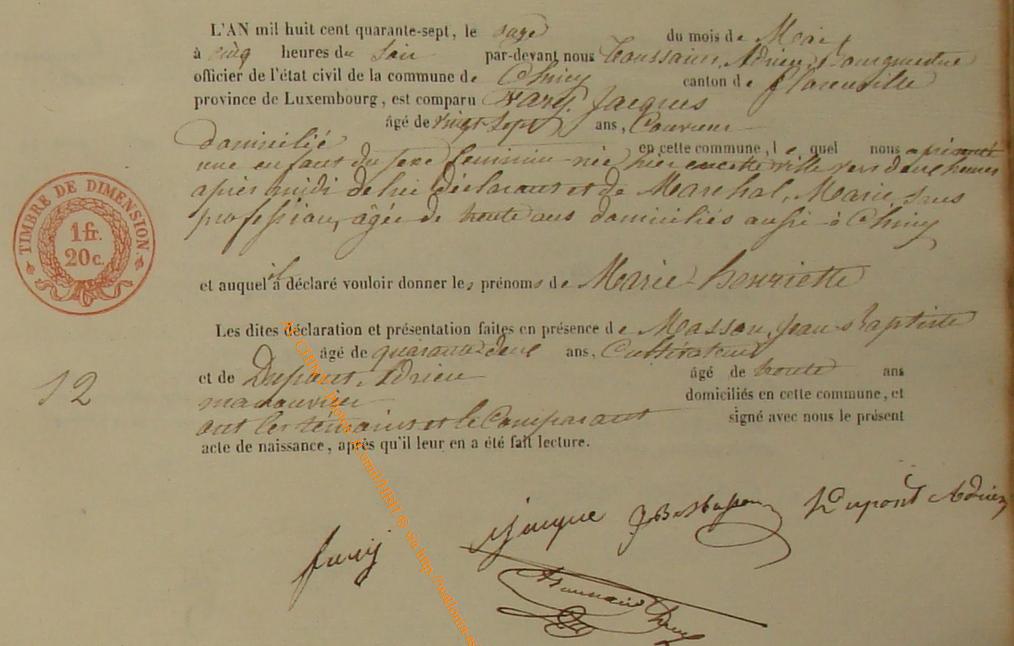 L'AN mil huit cent quarante-sept, le onze du mois de Mai
à cinq heures du soir par-devant nous Toussaint, Adrien
officier de l'état civil de la commune de Chiny canton de Florenville
province de Luxembourg, est comparu Jacques
âgé de vingt sept ans, Couvreur
domicilié en cette commune, le quel nous a présenté
une enfant du sexe feminin née hier en cette ville vers deux heures
après midi de lui déclarant et de Marechal, Marie, sans
profession, âgée de trente ans domiciliés aussi à Chiny
et auquel il a déclaré vouloir donner les prénoms de Marie-henriette
Les dites déclaration et présentation faites en présence de Masson, Jean-Baptiste
âgé de quarante deux ans, Cultivateur
et de Dupont, Adrien âgé de trente ans
manouvrier domiciliés en cette commune, et
ont les temoins et le Comparant signé avec nous le présent
acte de naissance, après qu'il leur en a été fait lecture.
12
TIMBRE DE DIMENSION
1 fr.
20 c.
Jacque JBMasson Dupont Adrien